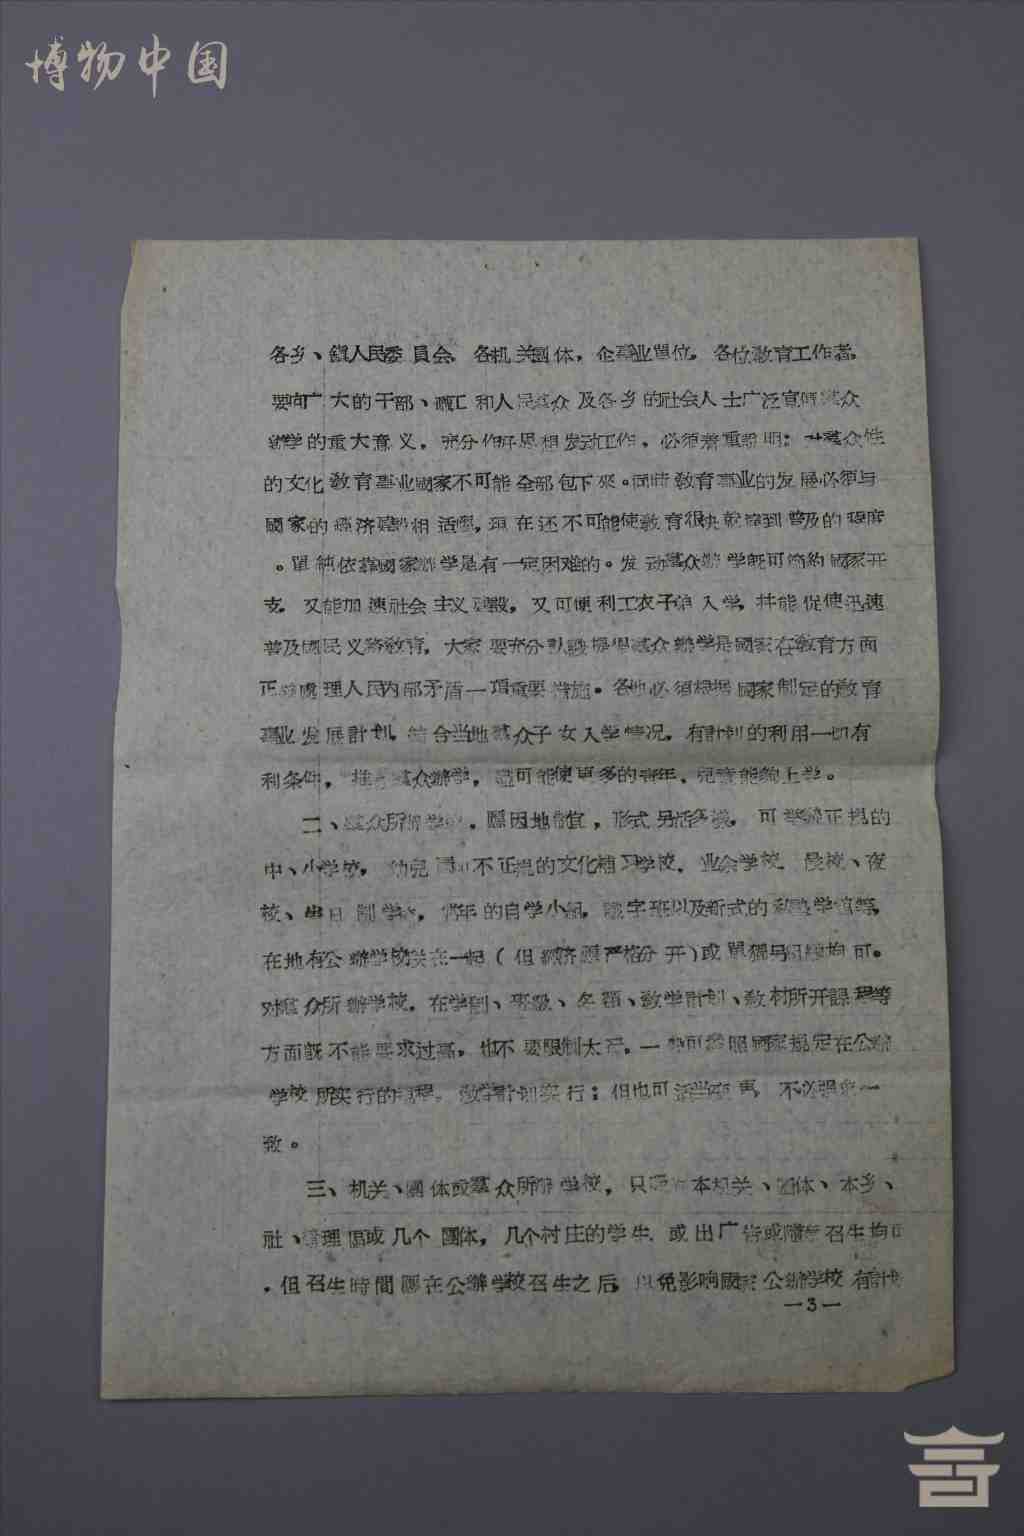 博物中国
各乡、鎮人民委員会，各机关團体，企事业單位，各位教育工作者，
要向广大的干部、職工和人民羣众及各乡的社会人士广泛宣傳羣众
辦学的重大意义，充分作好思想发动工作，必须着重說明：羣众性
的文化教育事业國家不可能全部包下來。同時教育事业的发展必须与
國家的經济建設相适應，現在还不可能使教育很快就達到普及的程度
。單純依靠國家辦学是有一定困难的。发动羣众辦学既可節約國家开
支，又能加速社会主义建設，又可便利工农子弟入学，并能促使迅速
普及國民义務教育，大家要充分認識提倡羣众辦学是國家在教育方面
正確處理人民内部矛盾一項重要措施。各地必须根据國家制定的教育
事业发展計划，結合当地羣众子女入学情况，有計划的利用一切有
利条件，推動羣众辦学，儘可能使更多的青年，兒童能夠上学。
二、羣众所辦学校，應因地制宜，形式灵活多樣，可举辦正規的
中、小学校，幼兒園和不正規的文化補习学校，业余学校，晨校、夜
校、半日制学校，青年的自学小組，識字班以及新式的私塾学館等，
在地有公辦学校处在一起（但經济應严格分开）或單獨另立均可。
对羣众所辦学校，在学制、班級、名額、教学計划、教材所开課程等
方面既不能要求过高，也不要限制太严，一般可参照國家規定在公辦
学校所实行的課程，教学計划实行；但也可适当变更，不必强求一
致。
三、机关、團体或羣众所辦学校，只限于本机关、團体、本乡、
社、管理區或几个團体，几个村庄的学生，或出广告或隨意召生均可
，但召生時間應在公辦学校召生之后，以免影响國家公辦学校有計划
—3—